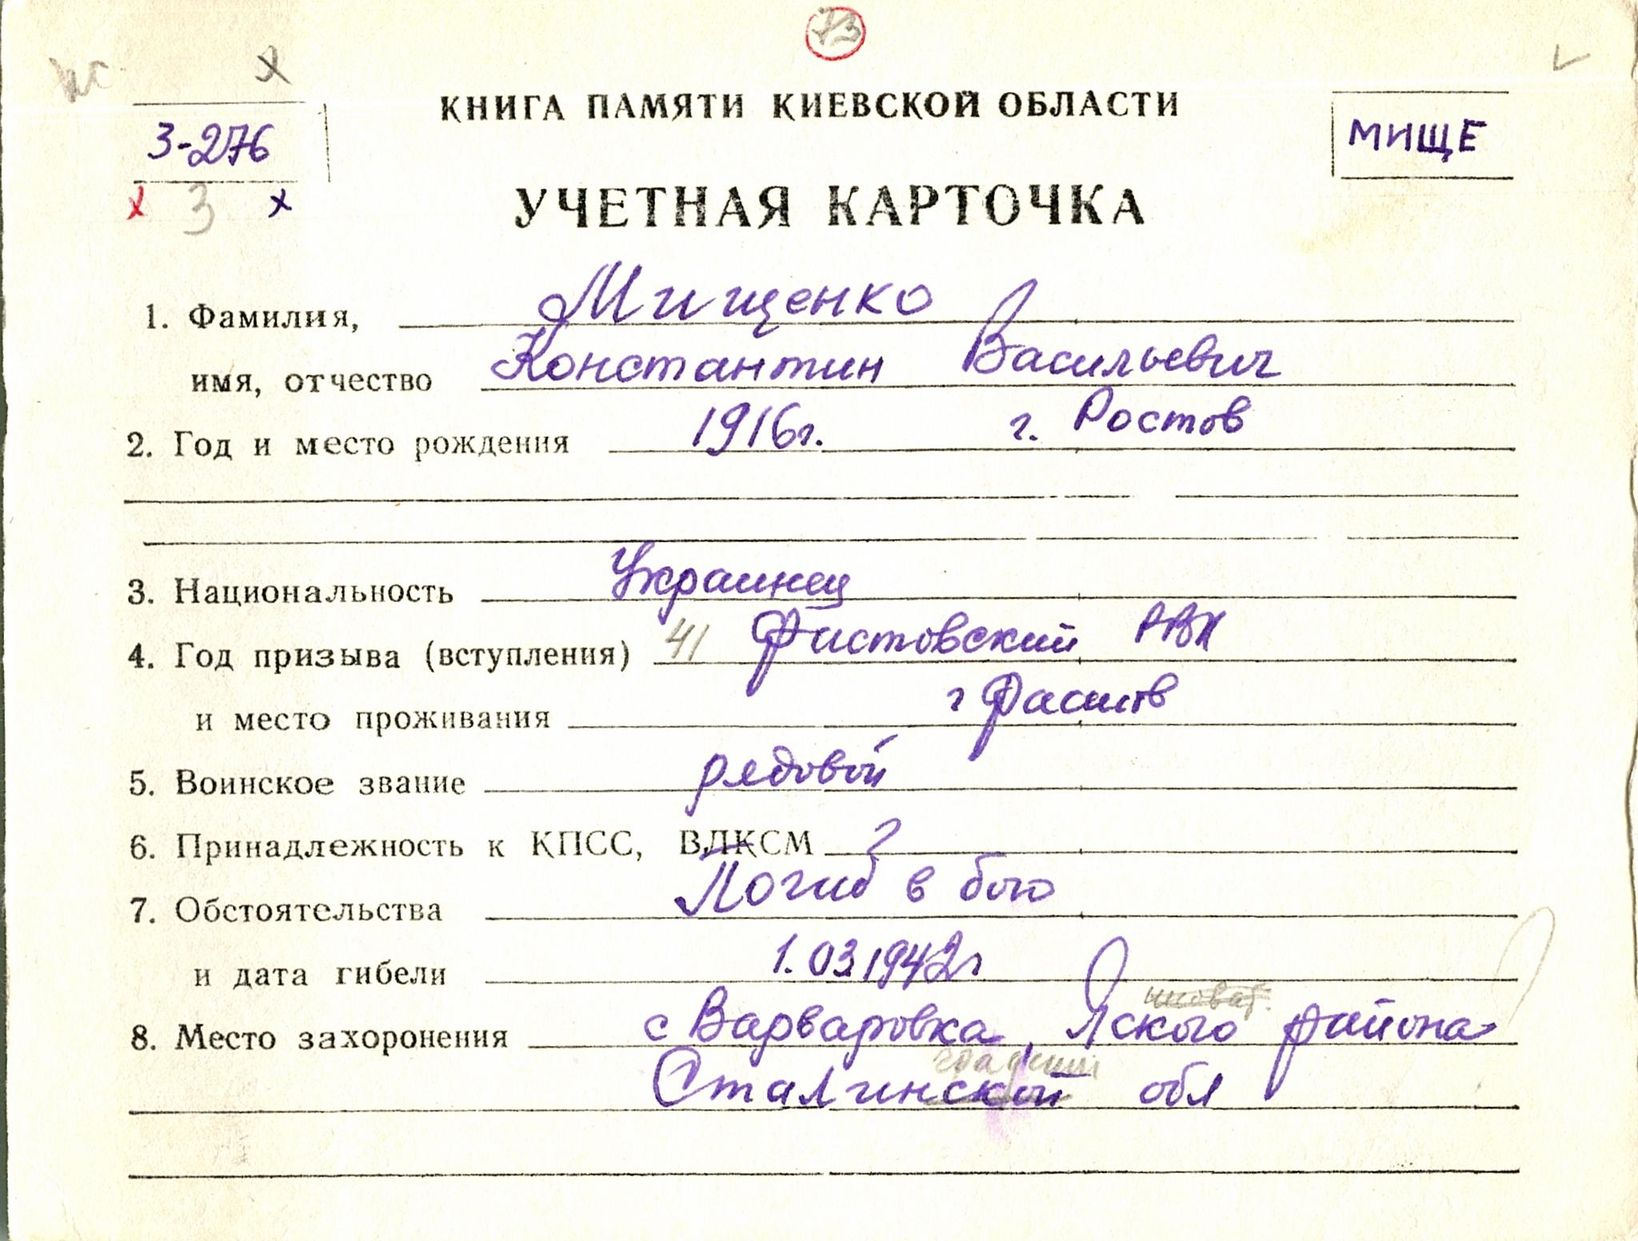 73
КНИГА ПАМЯТИ КИЕВСКОЙ ОБЛАСТИ
3-276
МИЩЕ
3
УЧЕТНАЯ КАРТОЧКА
1. Фамилия, Мищенко
имя, отчество Константин Васильевич
2. Год и место рождения 1916г. г. Ростов
3. Национальность Украинец
4. Год призыва (вступления) 41 РВК
и место проживания г
5. Воинское звание рядовой
6. Принадлежность к КПСС, ВЛКСМ ?
7. Обстоятельства Погиб в бою
и дата гибели 1.03.1942г
8. Место захоронения с Варваровка, района
Сталинской обл